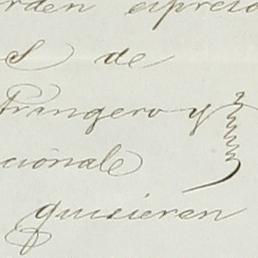 orden espreso
s de
trangero y
cionale
quisieren